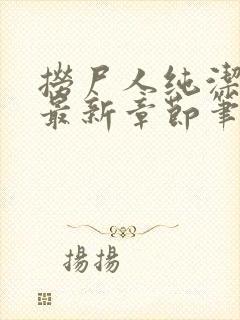 撈尸人純潔
最新章節筆
揚揚